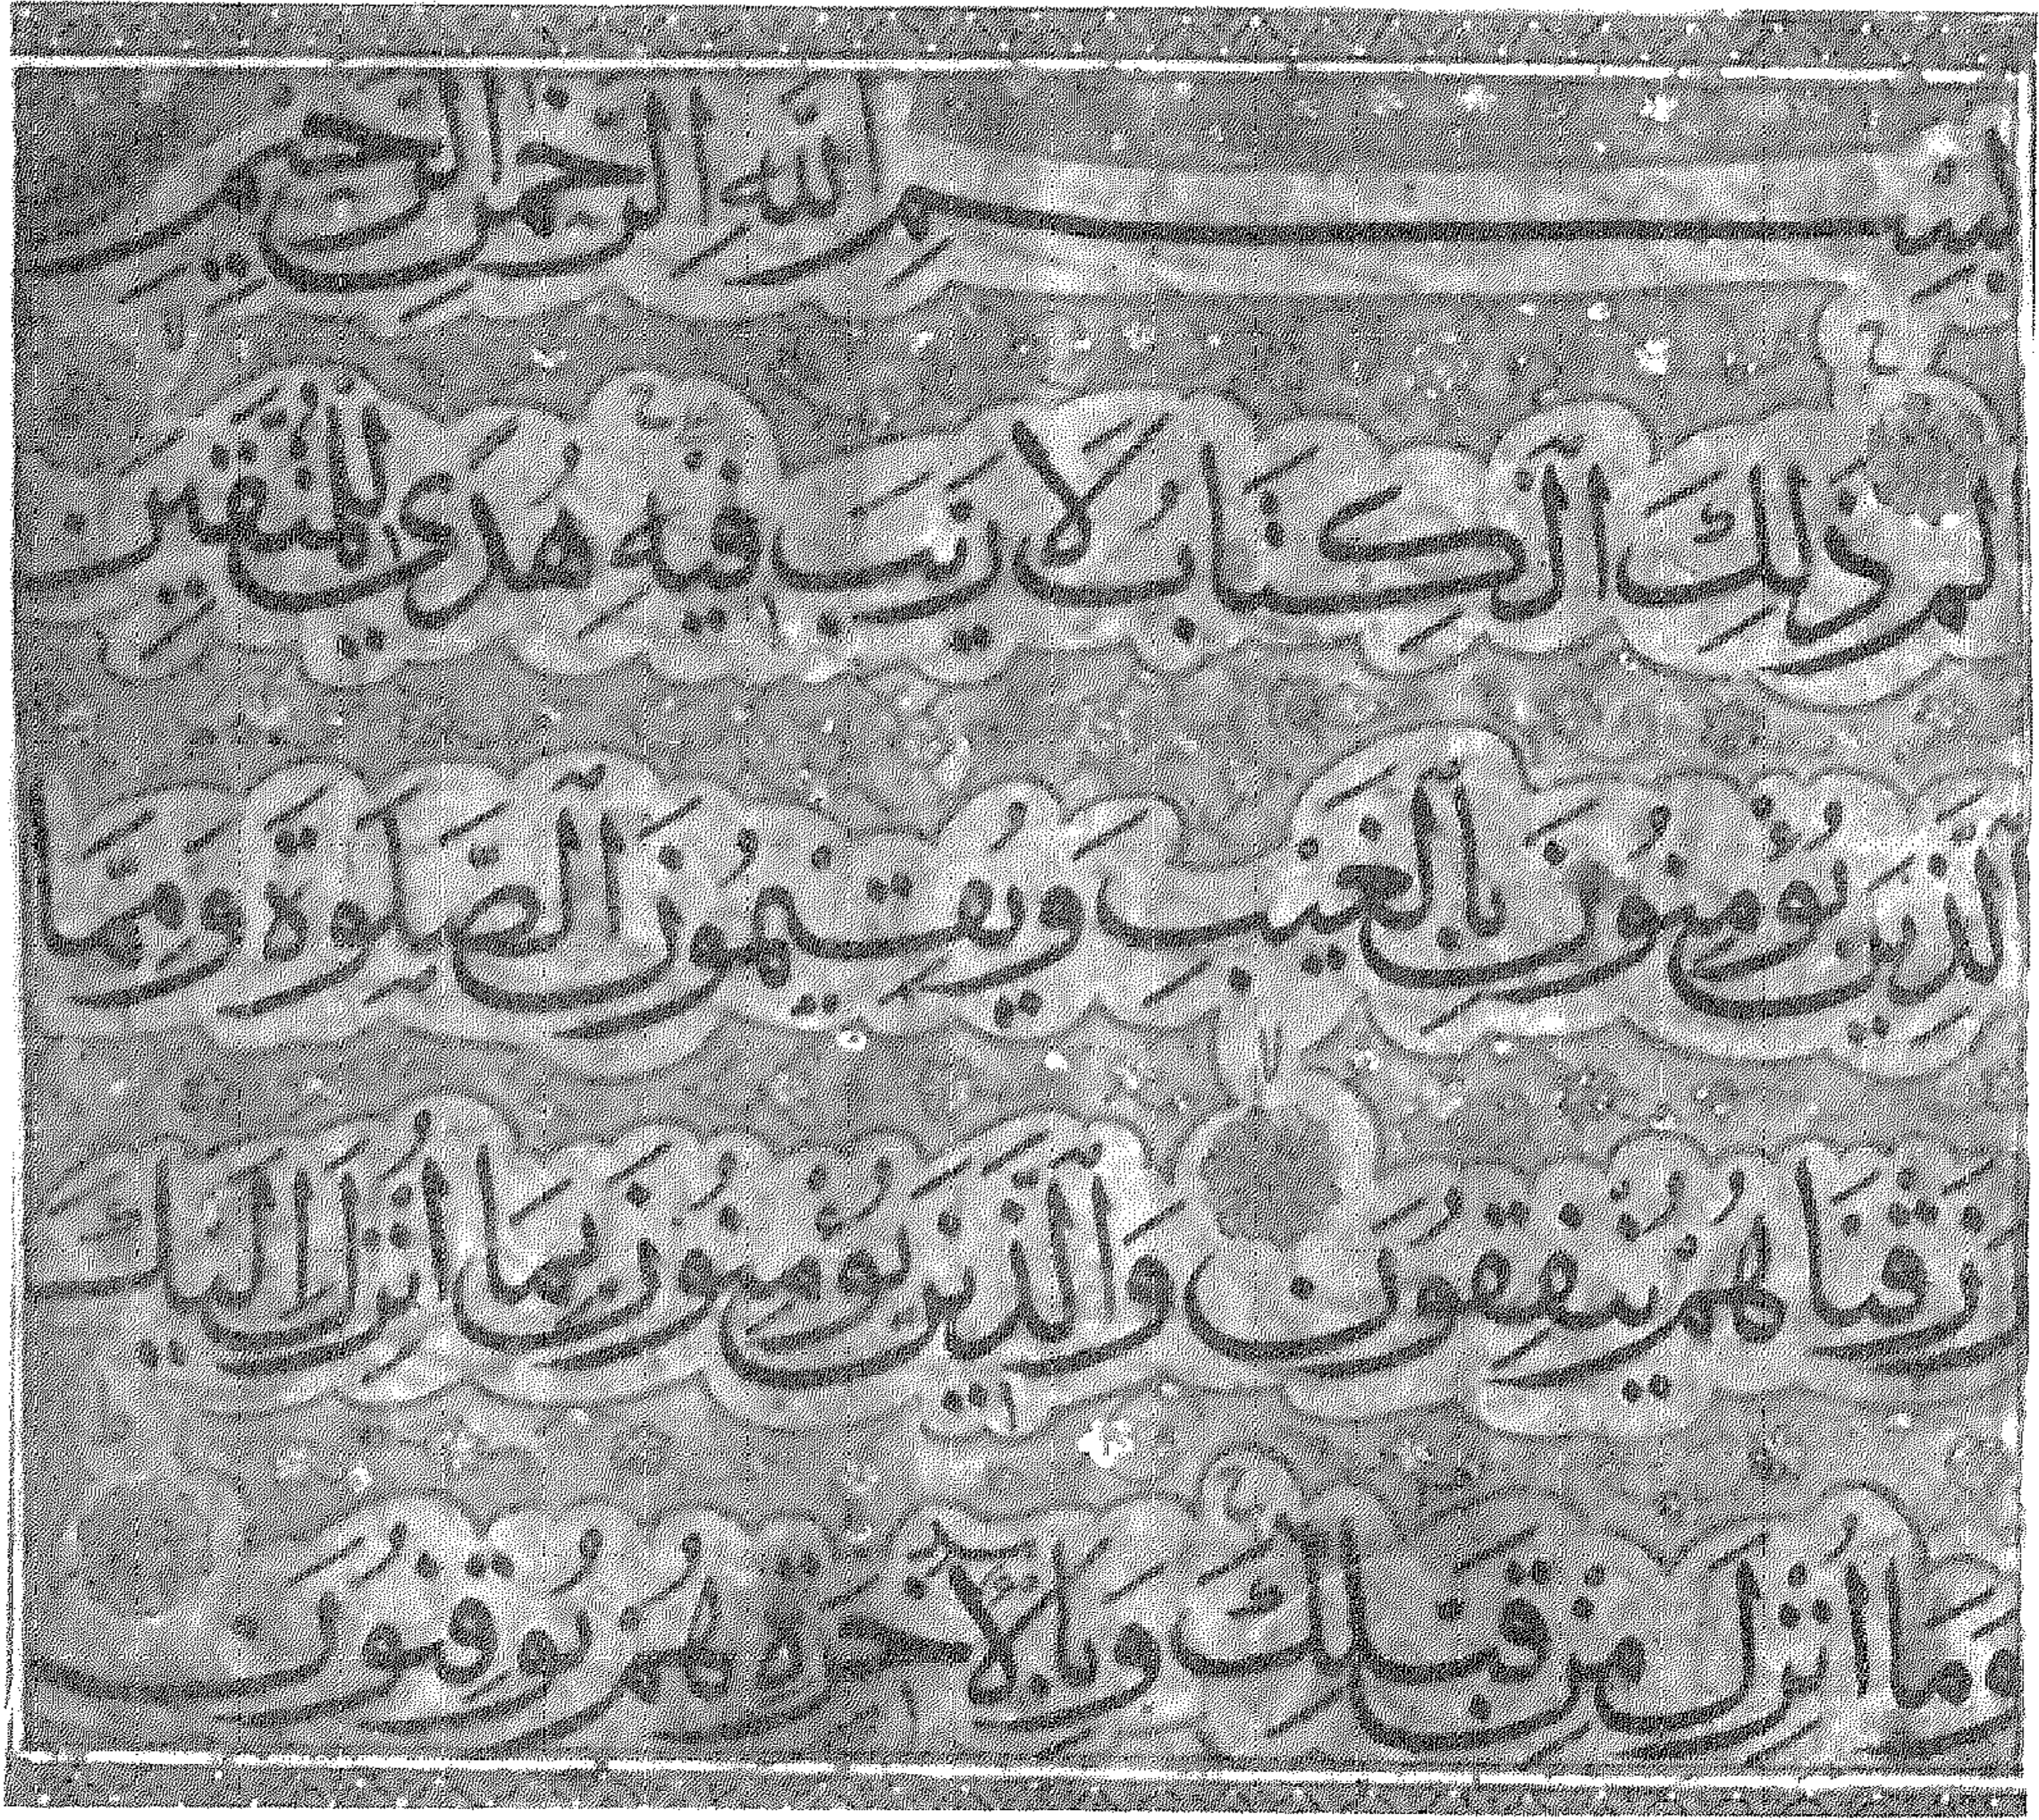 بِسْمِ اللّٰهِ الرَّحْمٰنِ الرَّحِيمِ
الم ذَلِكَ الْكِتَابُ لَا رَيْبَ فِيهِ هُدًى لِلْمُتَّقِينَ
الَّذِينَ يُؤْمِنُونَ بِالْغَيْبِ وَيُقِيمُونَ الصَّلَوةَ وَمِمَّا
رَزَقْنَاهُمْ يُنْفِقُونَ وَالَّذِينَ يُؤْمِنُونَ بِمَا أُنْزِلَ إِلَيْكَ
وَمَا أُنْزِلَ مِنْ قَبْلِكَ وَبِالْآخِرَةِ هُمْ يُوقِنُونَ